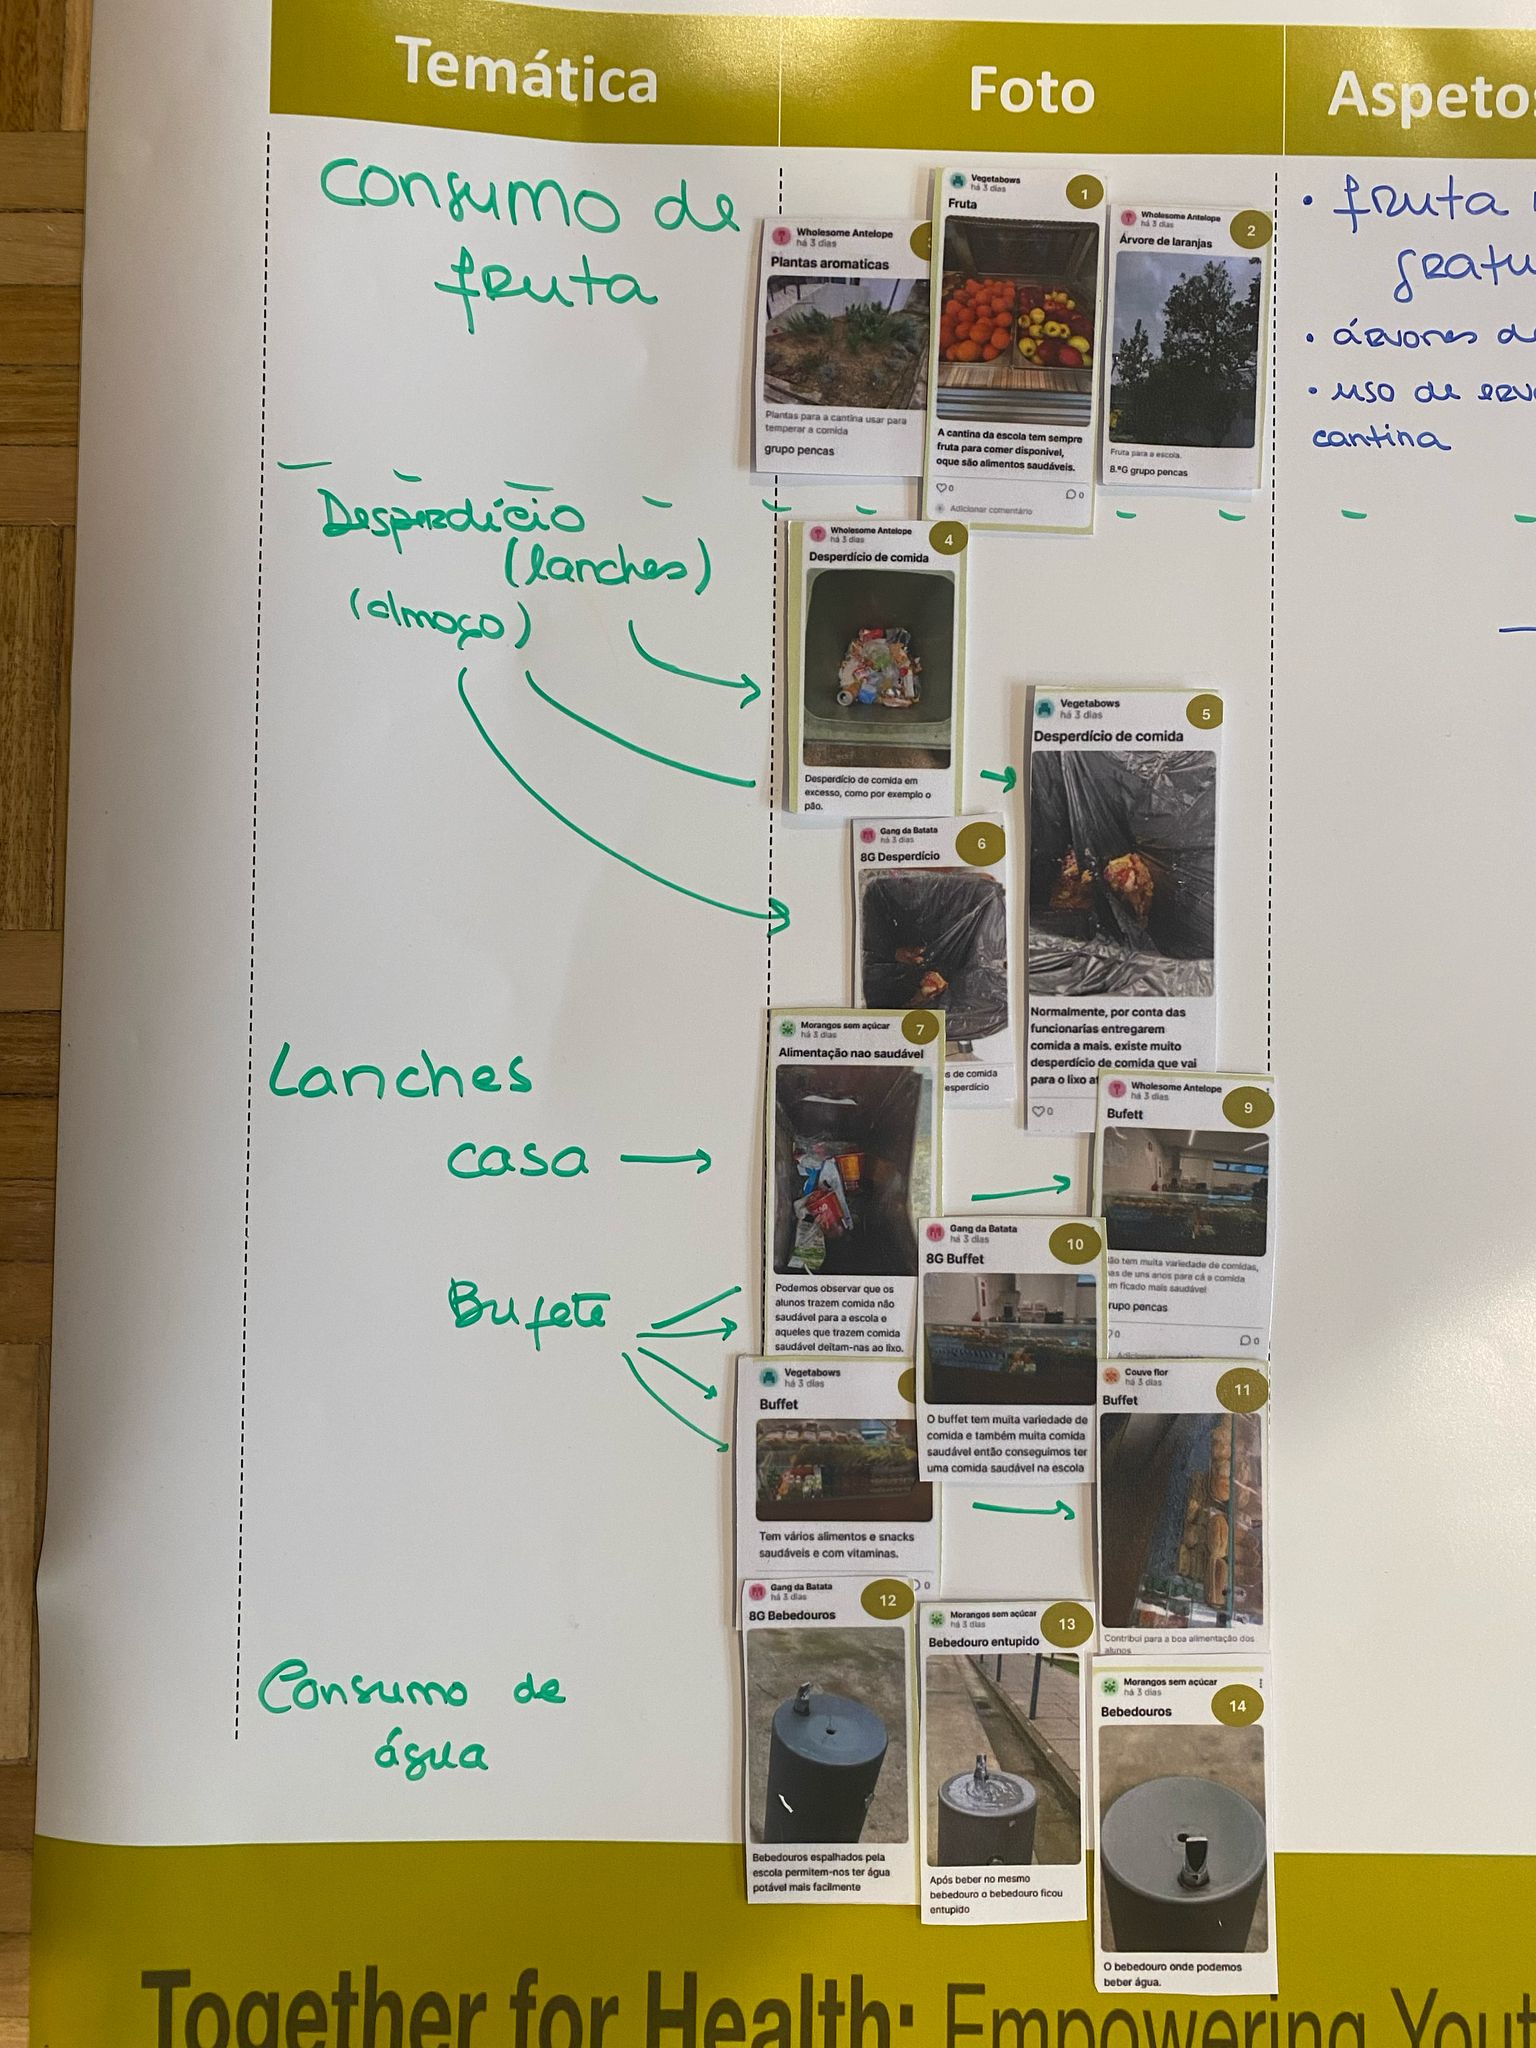 Temática
Foto
Aspetos
Consumo de
fruta
Wholesome Antelope
há 3 dias
Plantas aromaticas
Plantas para a cantina usar para
temperar a comida
grupo pencas
Vegetabows
há 3 dias
1
Fruta
A cantina da escola tem sempre
fruta para comer disponivel,
oque são alimentos saudáveis.
0
0
Adicionar comentário
Wholesome Antelope
há 3 dias
2
Árvore de laranjas
Fruta para a escola.
8.ºG grupo pencas
• fruta
• árvores
• uso de
cantina
Desperdício
(lanches)
(almoço)
Wholesome Antelope
há 3 dias
4
Desperdício de comida
Desperdício de comida em
excesso, como por exemplo o
pão.
Vegetabows
há 3 dias
5
Desperdício de comida
Normalmente, por conta das
funcionarias entregarem
comida a mais. existe muito
desperdício de comida que vai
para o lixo
0
Gang da Batata
há 3 dias
6
8G Desperdício
s de comida
esperdício
Lanches
casa
Bufete
Morangos sem açúcar
há 3 dias
7
Alimentação nao saudável
Podemos observar que os
alunos trazem comida não
saudável para a escola e
aqueles que trazem comida
saudável deitam-nas ao lixo.
Wholesome Antelope
há 3 dias
9
Bufett
ão tem muita variedade de comidas,
as de uns anos para cá a comida
m ficado mais saudável
rupo pencas
0
0
Gang da Batata
há 3 dias
10
8G Buffet
O buffet tem muita variedade de
comida e também muita comida
saudável então conseguimos ter
uma comida saudável na escola
Vegetabows
há 3 dias
Buffet
Tem vários alimentos e snacks
saudáveis e com vitaminas.
0
Couve flor
há 3 dias
11
Buffet
Contribui para a boa alimentação dos
alunos
Consumo de
água
Gang da Batata
há 3 dias
12
8G Bebedouros
Bebedouros espalhados pela
escola permitem-nos ter água
potável mais facilmente
Morangos sem açúcar
há 3 dias
13
Bebedouro entupido
Após beber no mesmo
bebedouro o bebedouro ficou
entupido
Morangos sem açúcar
há 3 dias
14
Bebedouros
O bebedouro onde podemos
beber água.
Together for Health: Empowering